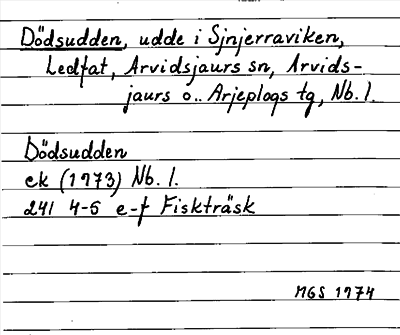 Dödsudden, udde i Sjnjerraviken,
Ledfat, Arvidsjaurs sn, Arvids-
jaurs o. Arjeplogs tg, Nb. l.
Dödsudden
ek (1973) Nb. l.
241 4-5 e-f Fiskträsk
MGS 1974